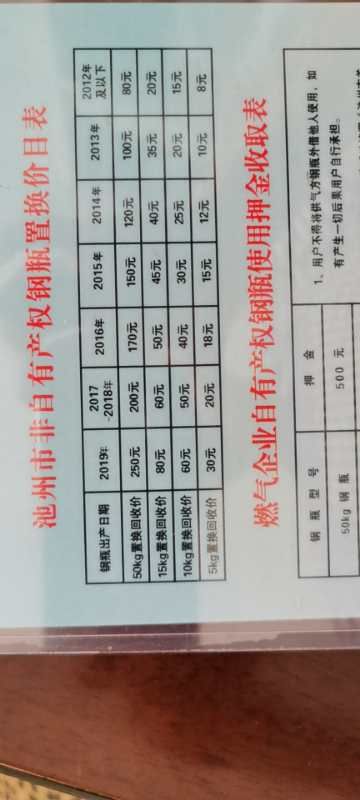 池州市非自有产权钢瓶置换价目表
钢瓶出产日期 2019年 2017-2018年 2016年 2015年 2014年 2013年 2012年及以下
50kg置换回收价 250元 200元 170元 150元 120元 100元 80元
15kg置换回收价 80元 60元 50元 45元 40元 35元 20元
10kg置换回收价 60元 50元 40元 30元 25元 20元 15元
5kg置换回收价 30元 20元 18元 15元 12元 10元 8元
燃气企业自有产权钢瓶使用押金收取表
钢瓶型号 押金
50kg 钢瓶 500 元
1、用户不得将供气方钢瓶外借他人使用，如
有产生一切后果用户自行承担。